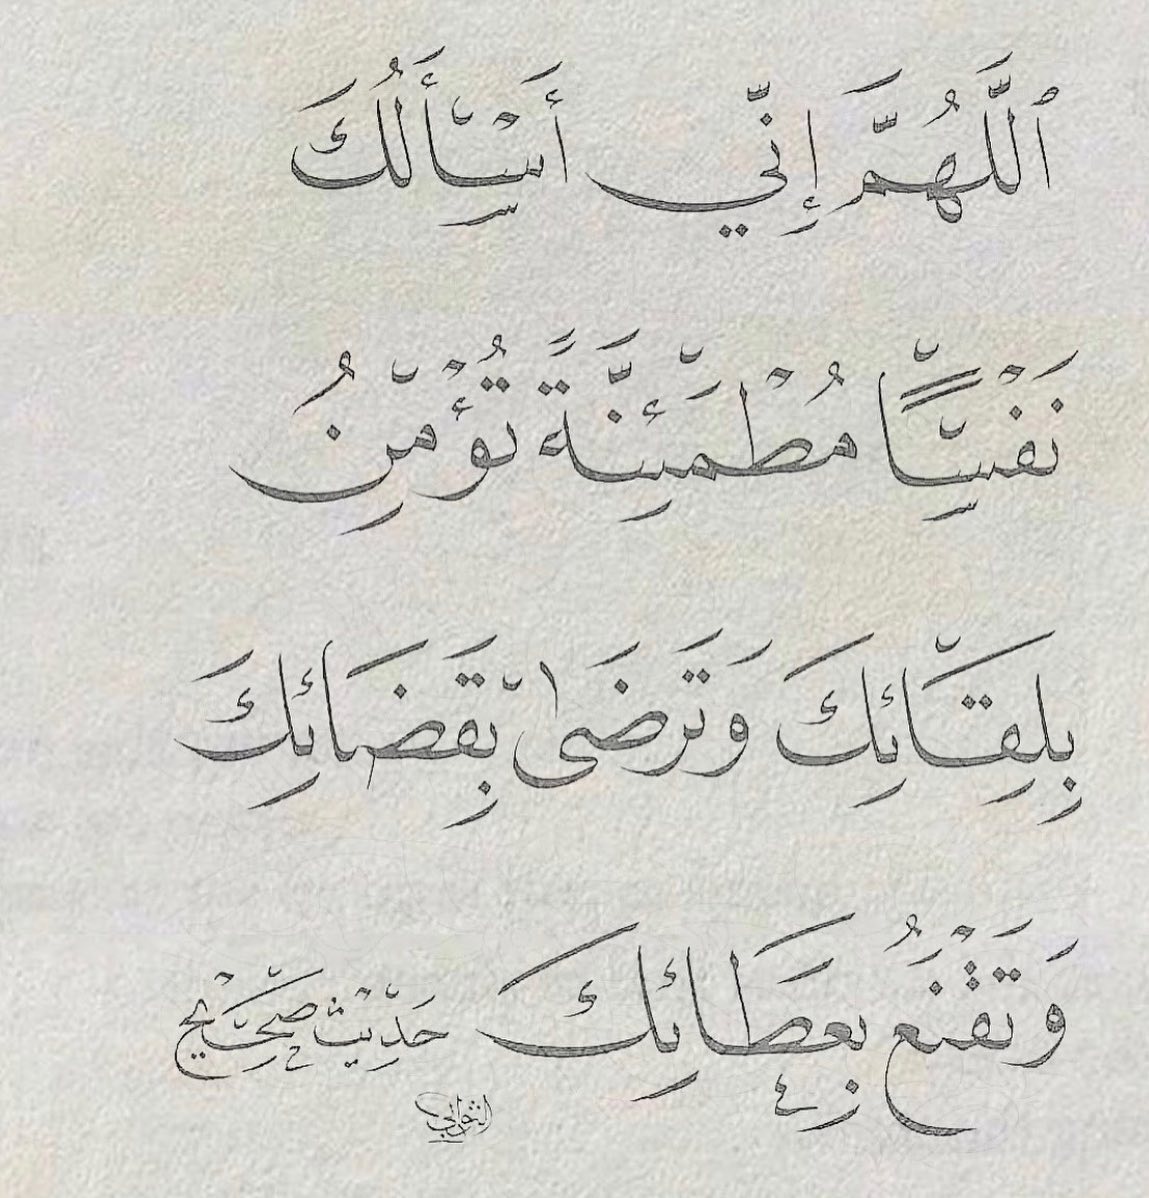 ٱللَّهُمَّ إِنِّي أَسْأَلُكَ
نَفْسًا مُطْمَئِنَّةً تُؤْمِنُ
بِلِقَائِكَ وَتَرْضَى بِقَضَائِكَ
وَتَقْنَعُ بِعَطَائِكَ حَدِيْث صَحِيْح